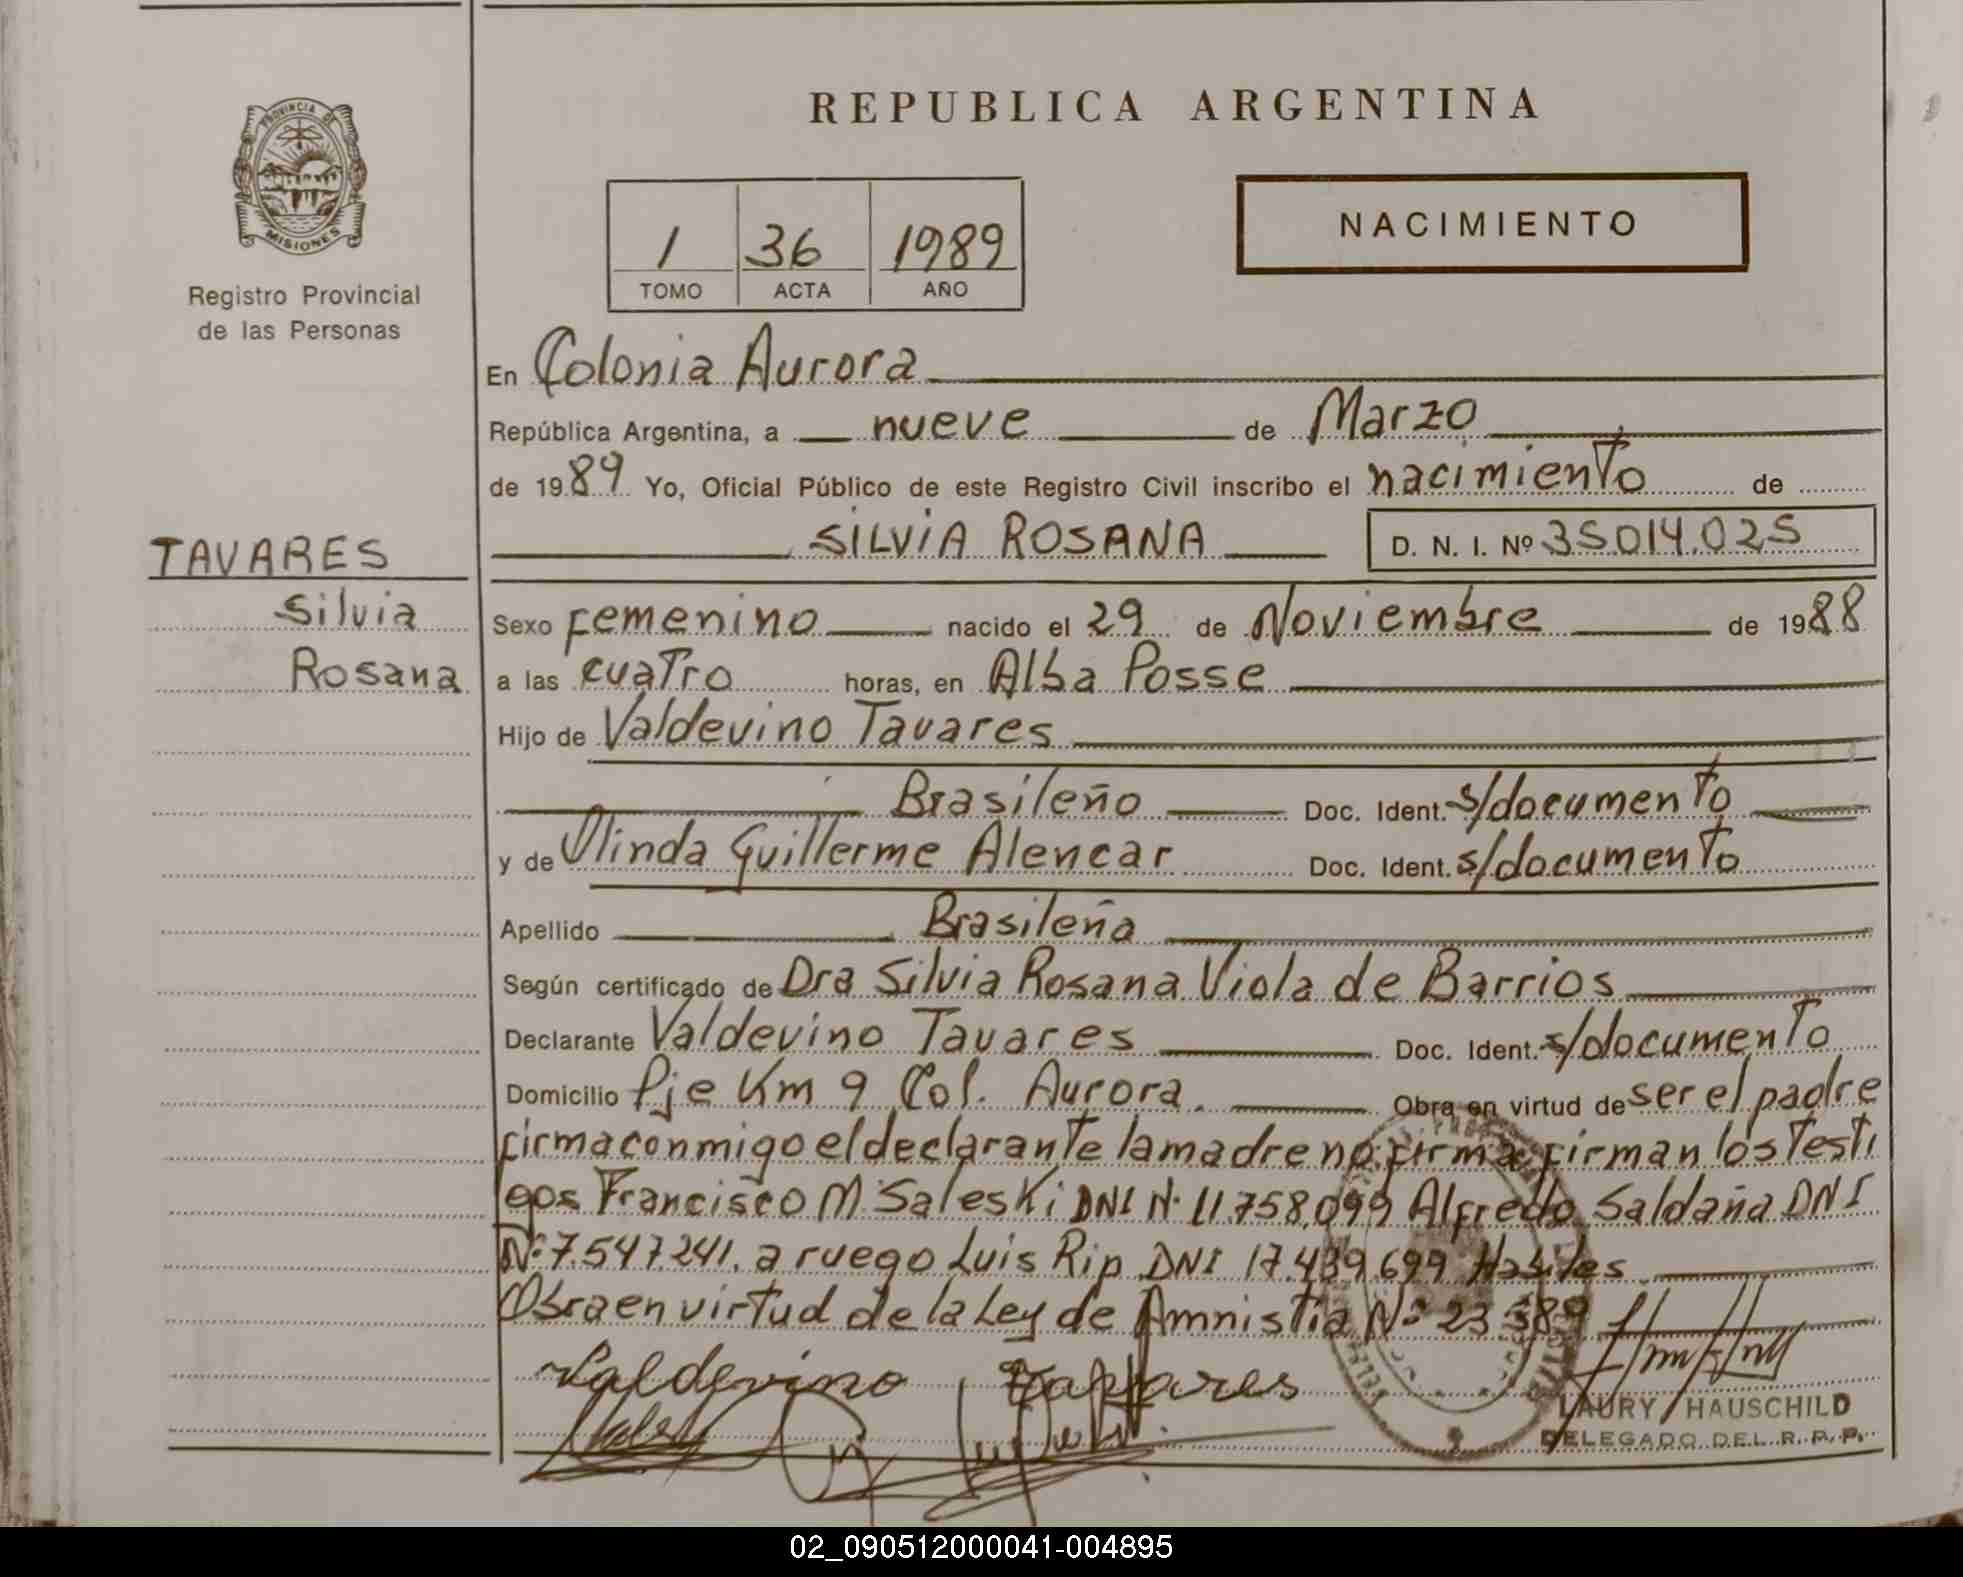 REPUBLICA ARGENTINA
PROVINCIA DE
MISIONES
Registro Provincial
de las Personas
NACIMIENTO
1 36 1989
TOMO ACTA AÑO
En Colonia Aurora
República Argentina, a nueve de Marzo
de 1989 Yo, Oficial Público de este Registro Civil inscribo el nacimiento de
SILVIA ROSANA D. N. I. Nº 35014.025
TAVARES
Silvia
Rosana
Sexo Femenino nacido el 29 de Noviembre de 1988
a las cuatro horas, en Alba Posse
Hijo de Valdevino Tavares
Brasileño Doc. Ident. s/documento
y de Olinda Guillerme Alencar Doc. Ident. s/documento
Apellido Brasileña
Según certificado de Dra Silvia Rosana Viola de Barrios
Declarante Valdevino Tavares Doc. Ident. s/documento
Domicilio Pje Km 9 Col. Aurora. Obra en virtud de ser el padre
firma conmigo el declarante la madre no firma firman los Testi
gos Francisco M. Saleski DNI N· 11.758.099 Alfredo Saldaña DNI
Nº 7.547.241. a ruego Luis Rip DNI 17.439.699 Habiles
Obra en virtud de la Ley de Amnistia Nº 23 389
Valdevino Tavares
LAURY HAUSCHILD
DELEGADO DEL R. P. P.
02_090512000041-004895